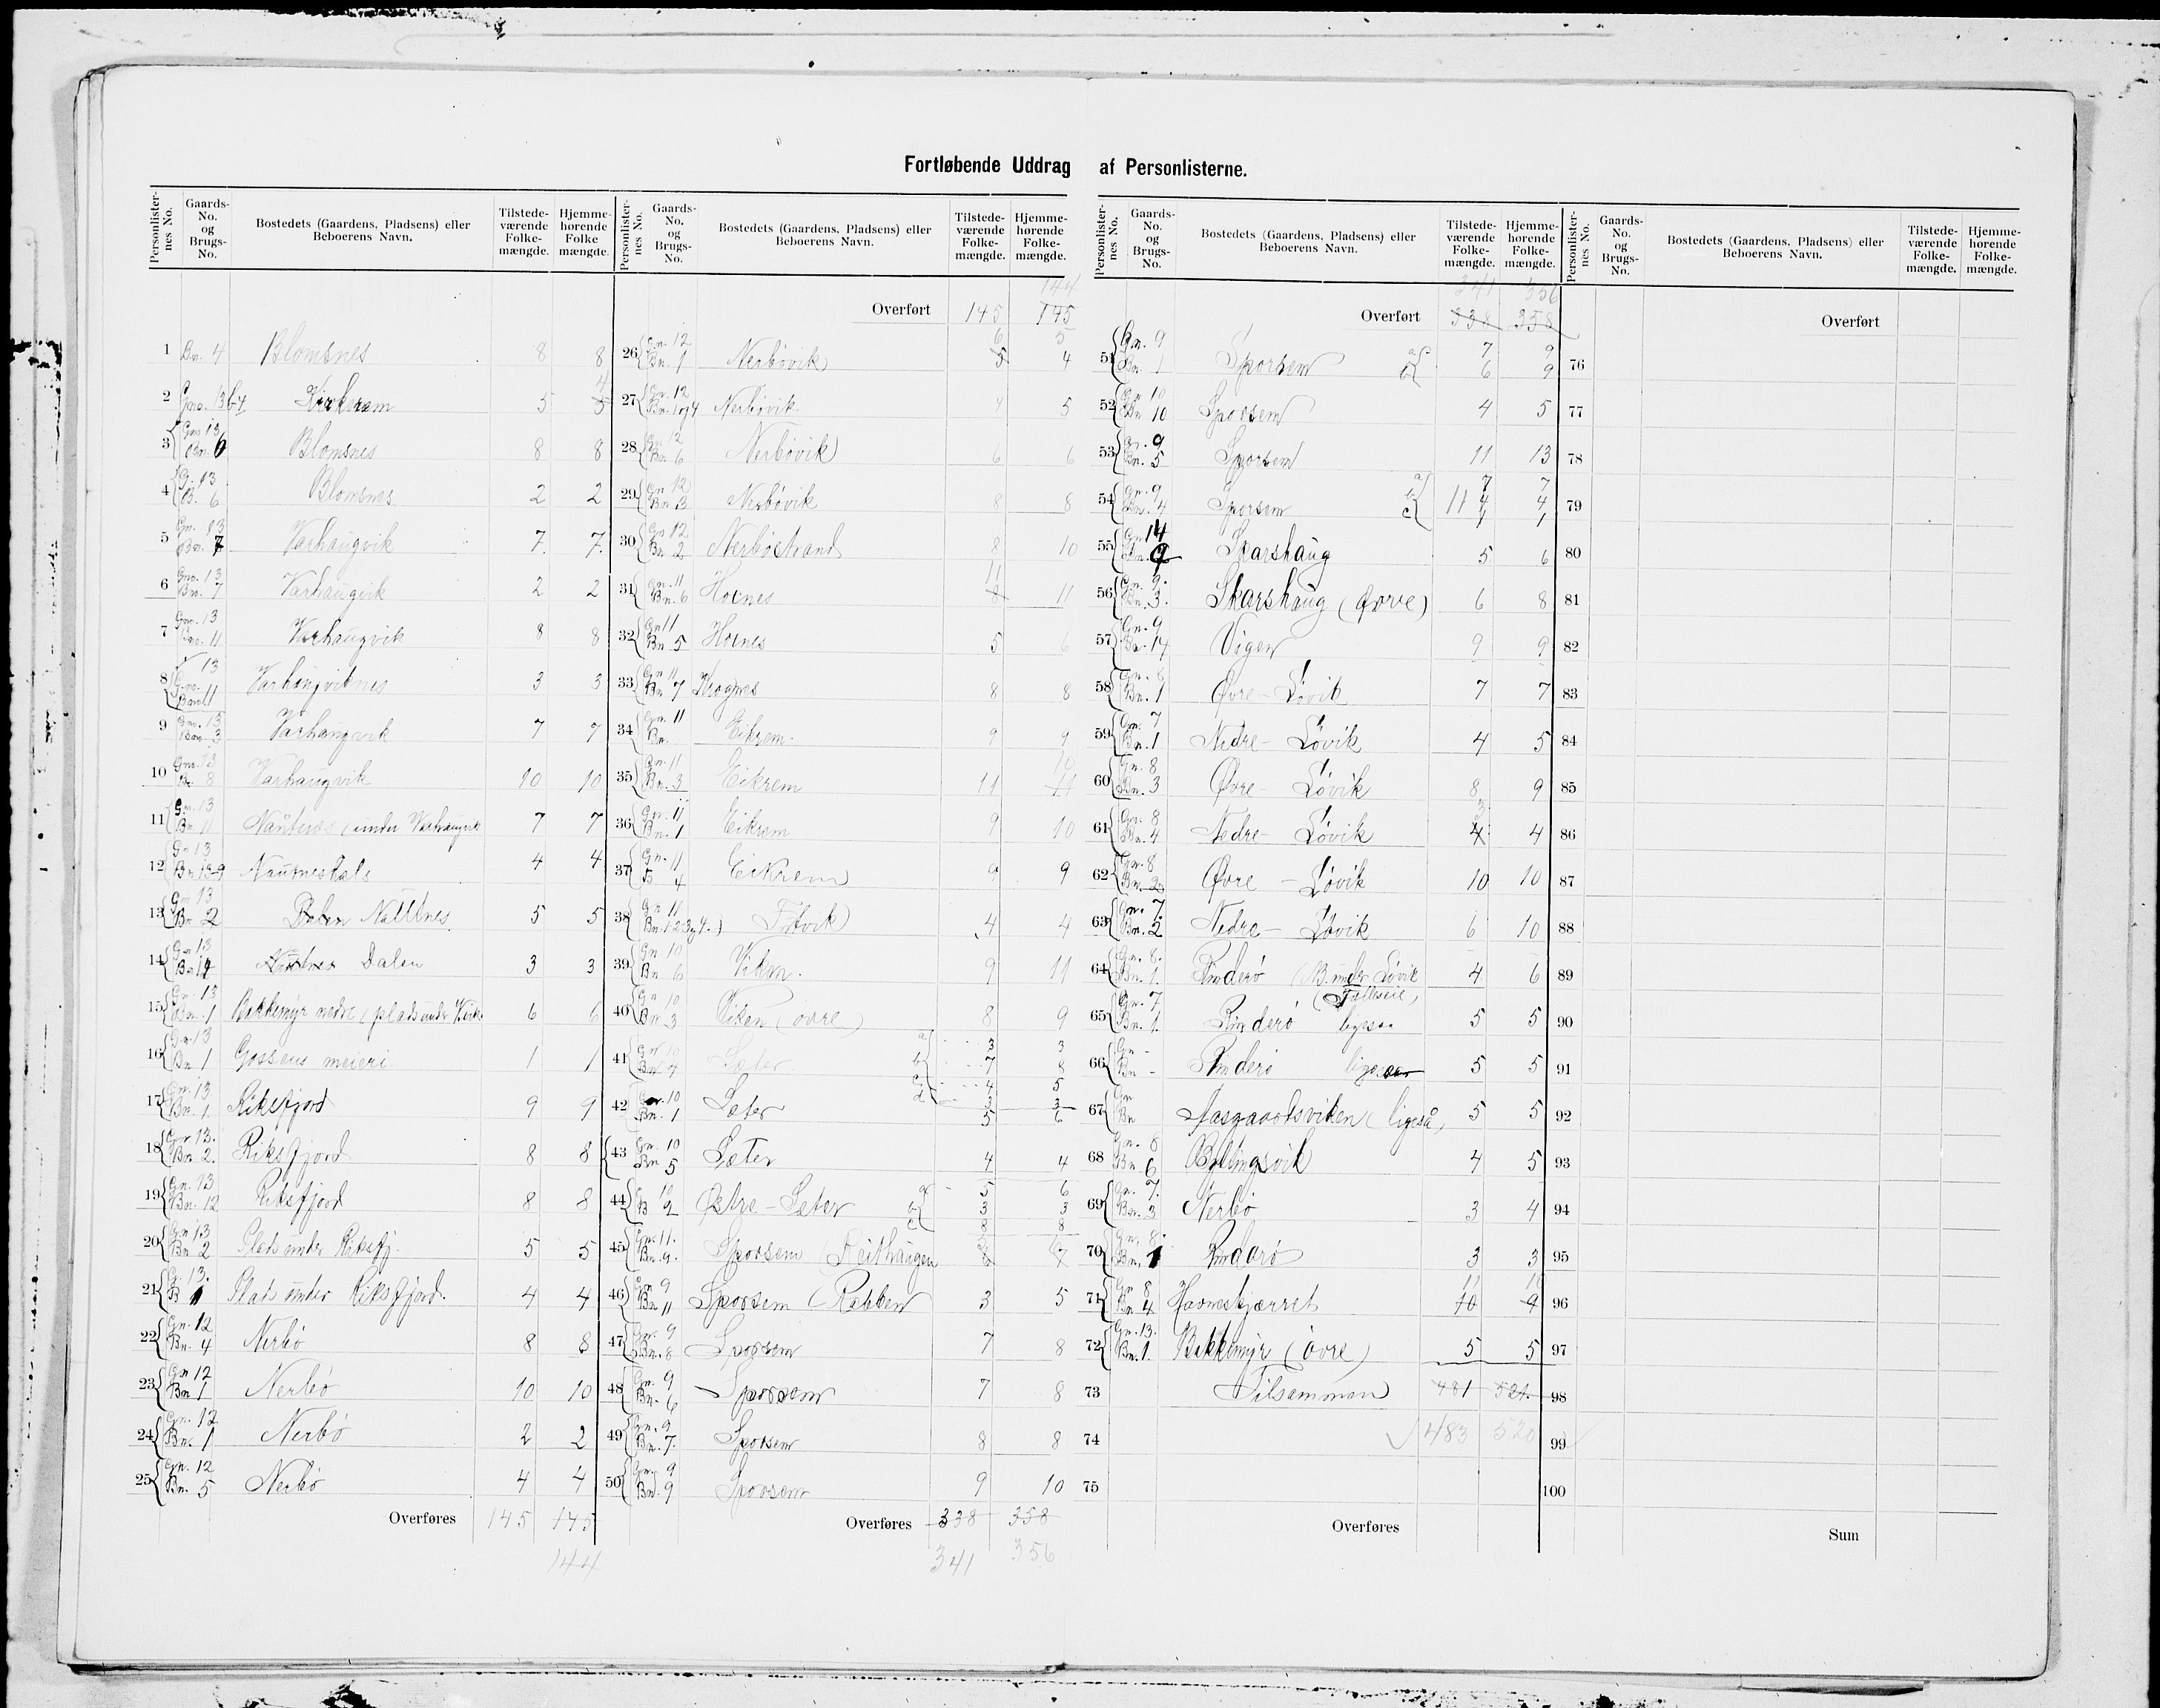 Fortløbende Uddrag af Personlisterne.
Personlister-nes No. Gaards-No. og Brugs-No. Bostedets (Gaardens, Pladsens) eller Beboerens Navn. Tilstede-værende Folke-mængde. Hjemme-hørende Folke mængde.
1 Bn. 4 Blomsnes 8 8
2 Gno. 13 b4 Kirkerem 5 5 4
3 Gno 13 Bn. 6 Blomsnes 8 8
4 G. 13 B. 6 Blomsnes 2 2
5 Gn. 13 Bn. 7 Varhaugvik 7. 7.
6 Gno. 13 Bn. 7 Varhaugvik 2 2
7 Gno. 13 Bno. 11 Varhaugvik 8 8
8 13 Gno. Bno 11 Varhaugviknes 3 3
9 Gno. 13 Bno. 3 Varhaugvik 7 7
10 Gno. 13 Bn 8 Varhaugvik 10 10
11 Gn. 13 Bn 11 (under Varhaugvik 7 7
12 Gn 13 4 4
13 Gn 13 Bn 2 5 5
14 Gn 13 Dalen 3 3
15 Gn. 13 Bn. 1 Bakkemyr nedre (plads under 6 6
16 Gn 13 Bn 1 Gossens meieri 1 1
17 Gn. 13 Bn. 1. Riksfjord 9 9
18 Gn. 13. Bn. 2. Riksfjord 8 8
19 Gn. 13 Bn. 12 Riksfjord 8 8
20 Gn 13 Bn 2 Plads under Riksfj. 5 5
21 G. 13. B 1 Plads under Riksfjord. 4 4
22 Gn. 12 Bn. 4 Nerbö 8 8
23 Gn 12 Bn 1 Nerbö 10 10
24 Gn. 12 Bn. 1 Nerbö 2 2
25 Gn. 12 Bn. 5 Nerbö 4 4
Overføres 145 145
144
Personlister-nes No. Gaards-No. og Brugs-No. Bostedets (Gaardens, Pladsens) eller Beboerens Navn. Tilstede-værende Folke-mængde. Hjemme-hørende Folke-mængde.
144
Overført 145 145
26 Gn. 12 Bn. 1 Nerbövik 6 5 5 4
27 Gn. 12 Bn. 1 og 4 Nerbövik 4 5
28 Gn. 12 Bn 6 Nerbövik 6 6
29 Gn 12 Bn 3 Nerbövik 8 8
30 Gn 12 Bn 2 Nerböstrand 8 10
31 Gn. 11 Bn. 6 Hoenes 11 8 11
32 Gn 11 Bn 5 Hoenes 5 6
33 Gn 11 Bn 7 Krognes 8 8
34 Gn. 11 Bn. Eikrem. 9 9
35 Gn. 11 Bn. 3 Eikrem 11 10 11
36 Gn. 11 Bn. 1 Eikrem 9 10
37 Gn. 11 B 4 Eikrem 9 9
38 Gn 11 Bn. 1 2 3 g 4. 4 4
39 Gn 10 Bn 6 Viken. 9 11
40 Gn 10 Bn 3 Viken (övre) 8 9
41 Gn 10 Sæter a 3 3
b 7 8
c 4 5
d 3 3
42 Gn. 10 Bn. 1 Sæter 5 6
43 Gn. 10 Bn 5 Sæter 4 4
44 10 B 2 Østre-Sæter a 5 6
b 3 3
c 8 8
45 Gn. 11. Bn. 9. Sporsem (Reithaugen 8 7
46 Gn 9 Bn 11 Sporsem (Rabben 3 5
47 Gn. 9 Bn. 8 Sporsem 7 8
48 Gn. 9 Bn. 6 Sporsem 7 8
49 Gn. 9 Bn. 7. Sporsem 8 8
50 Gn. 9 Bn. 9 Sporsem 9 10
Overføres 338 358
341 356
Personlister-nes No. Gaards-No. og Brugs-No. Bostedets (Gaardens, Pladsens) eller Beboerens Navn. Tilstede-værende Folke-mængde. Hjemme-hørende Folke-mængde.
341 356
Overført 338 358
51 Gn. 9 Bn. 1 Sporsem a 7 9
b 6 9
52 Gn 10 Bn 10 Sporsem 4 5
53 Gn. 9 Bn. 5 Sporsem 11 13
54 Gn. 9 Bn. 4 Sporsem a 7 7
b 11 4 4
c 1 1
55 Gn. 14 Bn. 9 Skarshaug 5 6
56 Gn. 9. Bn. 3. Skarshaug (Øvre) 6 8
57 Gn. 9 Bn. 14 Vigen 9 9
58 Gn. 8 Bn. 1 Øvre-Lövik 7 7
59 Gn. 7 Bn. 1 Nedre-Lövik 4 5
60 Gn. 8 Bn. 3 Øvre-Lövik 8 9
61 Gn. 8 Bn. 4 Nedre-Lövik 3 4 4
62 Gn. 8 Bn. 2 Øvre-Lövik 10 10
63 Gn. 7. Bn. 2 Nedre-Lövik 6 10
64 Gn. 8. Bn. 1. Rinderö (B. under Lövik 4 6
(Fælleseie)
65 Gn. 7 Bn. 1. Rinderö ligesaa 5 5
66 Gn - Bn - Rinderö ligesaa 5 5
67 Gn Bn Aasgaardsviken (ligeså) 5 5
68 Gn. 8 Bn. 6 Byllingsvik 4 5
69 Gn. 7. Bn. 3 Nerbö 3 4
70 Gn. 8. Bn. 1 Rinderö 3 3
71 Gn 8 Bn. 4 Havneskjærret 11 10 10 9
72 Gn. 13. Bn. 1. Bakkemyr (övre) 5 5
73 Tilsammen 481 521
74 483 520
75
Overføres
Personlister-nes No. Gaards-No. og Brugs-No. Bostedets (Gaardens, Pladsens) eller Beboerens Navn. Tilstede-værende Folke-mængde. Hjemme-hørende Folke-mængde.
Overført
76
77
78
79
80
81
82
83
84
85
86
87
88
89
90
91
92
93
94
95
96
97
98
99
100
Sum